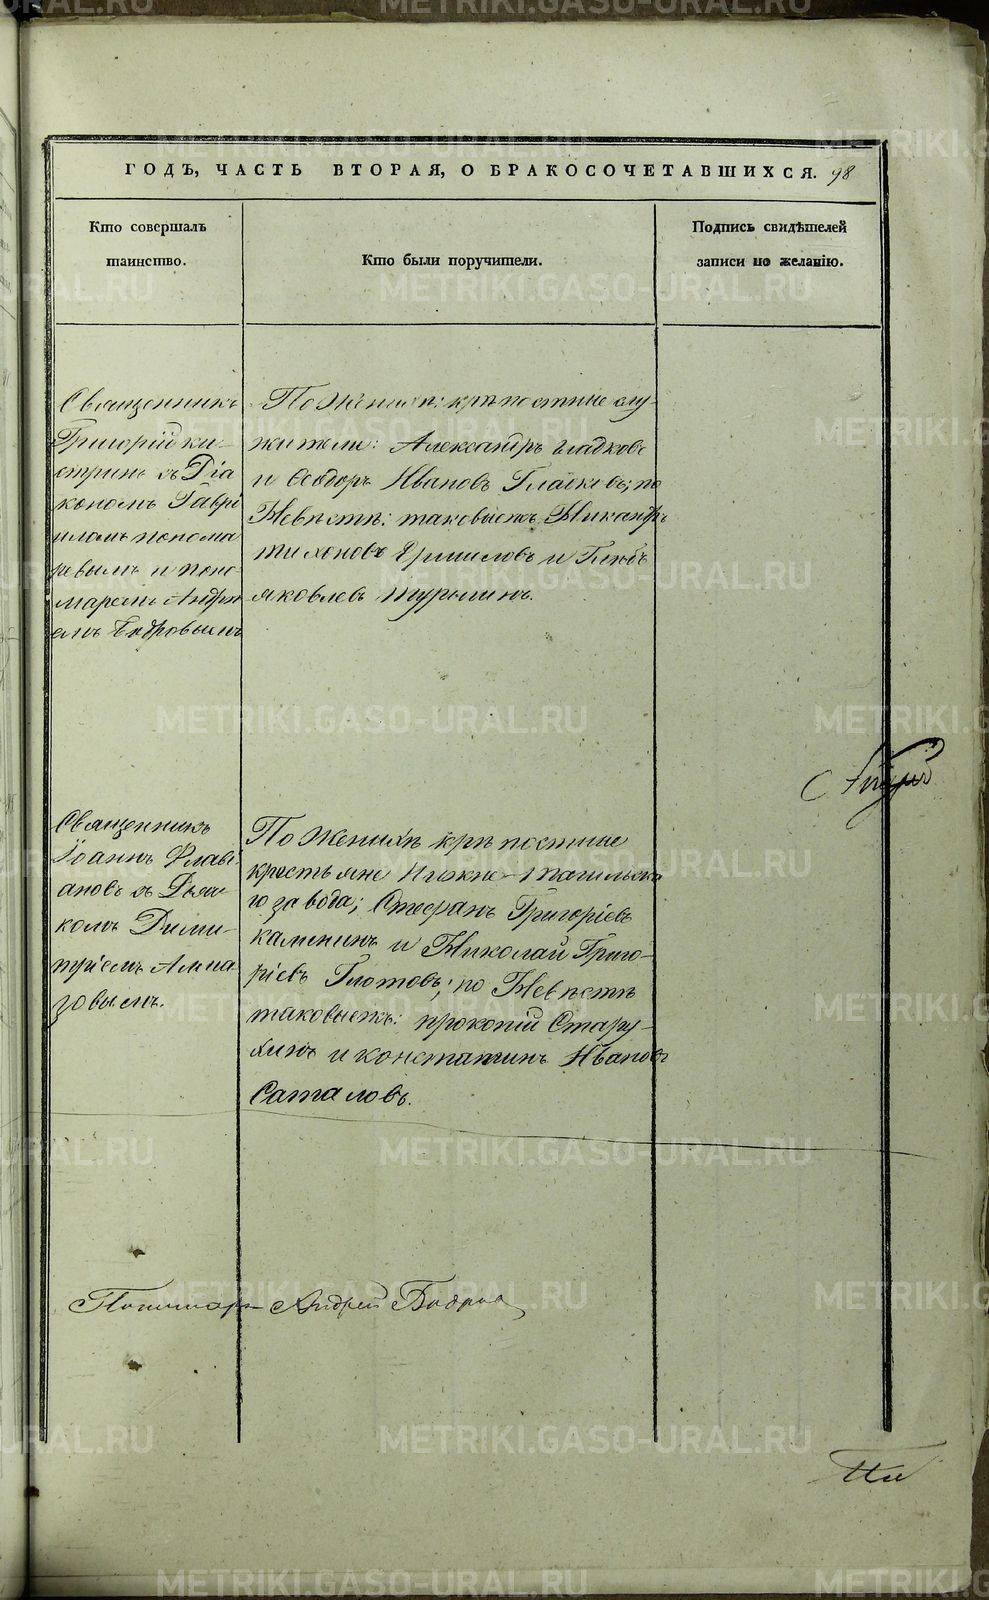 ГОДЪ, ЧАСТЬ ВТОРАЯ, О БРАКОСОЧЕТАВШИХСЯ. 98
Кто совершалъ
таинство.
Кто были поручители.
Подпись свидѣтелей
записи по желанію.
Священникъ
Григорій Ки-
стринъ съ Діа
кономъ Гаврі
иломъ понома
ревымъ и поно-
маремъ Андре
емъ Бодровымъ
По Женихѣ: крѣпостные слу-
жители: Александръ Гладковъ
и Ѳеодоръ Ивановъ Гладковъ; по
Невѣстѣ: таковыежъ Никандръ
тихоновъ Ермиловъ и Глѣбъ
яковлевъ турыгинъ.
Священникъ
Іоаннъ Флаві
ановъ съ Дьяч
комъ Дими-
тріемъ Алма
зовымъ.
По Женихѣ крѣпостные
крестьяне Нижне-тагильска
го завода; Стефанъ Григоріевъ
каменинъ и Николай Григо-
ріевъ Глотовъ; по Невѣстѣ
таковыежъ: прокопій Стару-
хинъ и константинъ Ивановъ
Саталовъ.
Пономарь Андрей Бодровъ
METRIKI.GASO-URAL.RU